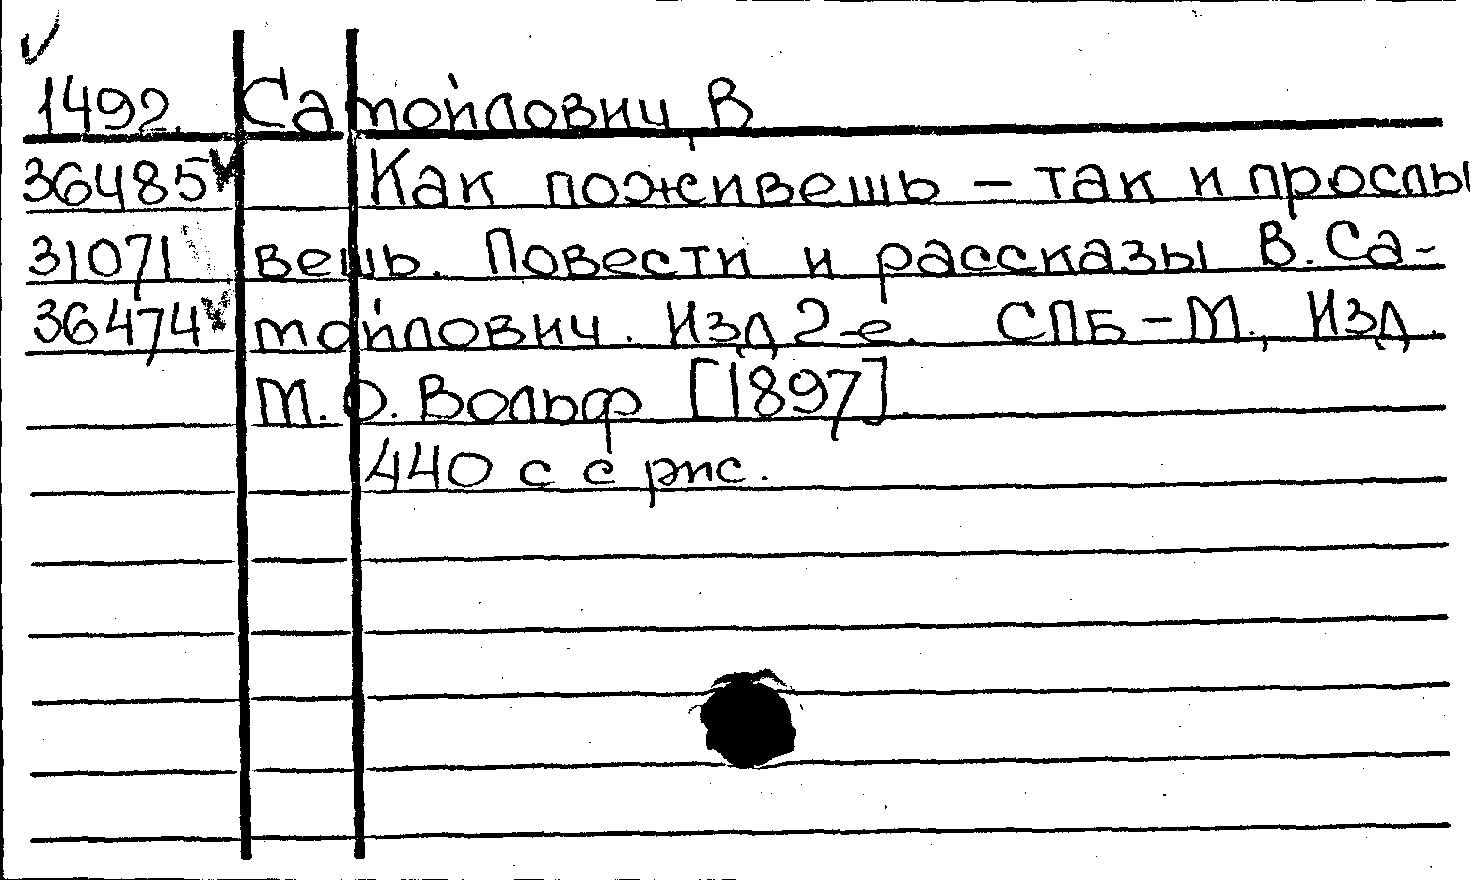 1492. Самойлович, В
36485 Как поживешь – так и прослы
31071 вешь. Повести и рассказы В. Са-
36474 мойлович. Изд 2-е. СПБ – М., Изд.
М. О. Вольф [1897].
440 с с рис.